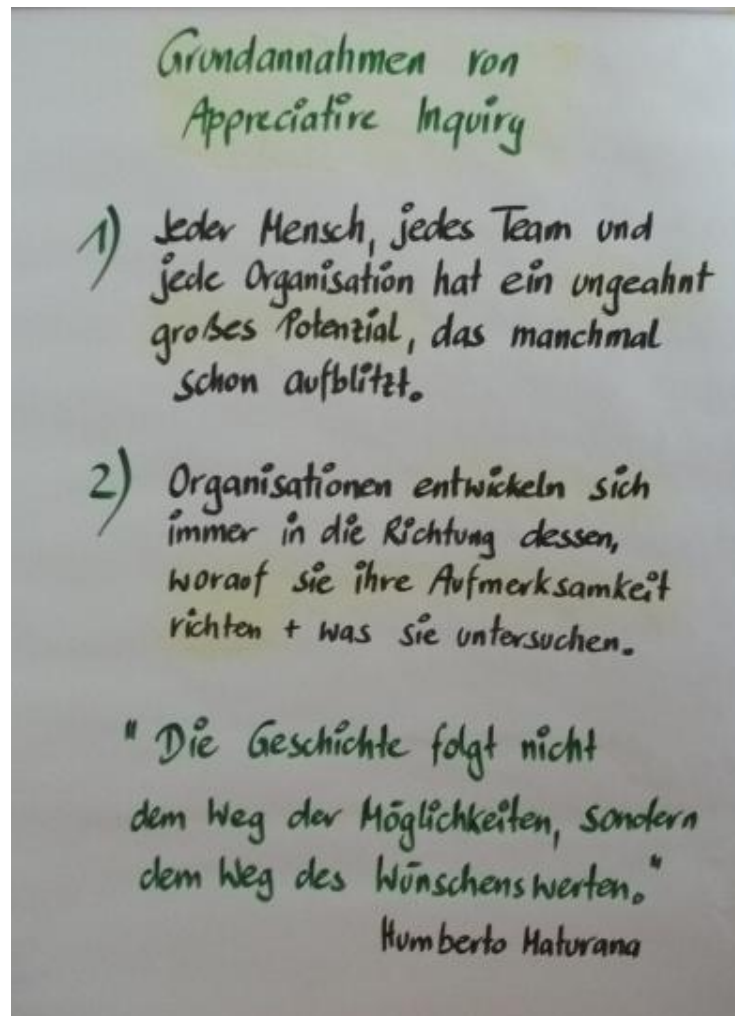 Grundannahmen von
Appreciative Inquiry
1) Jeder Mensch, jedes Team und
jede Organisation hat ein ungeahnt
großes Potenzial, das manchmal
schon aufblitzt.
2) Organisationen entwickeln sich
immer in die Richtung dessen,
worauf sie ihre Aufmerksamkeit
richten + was sie untersuchen.
"Die Geschichte folgt nicht
dem Weg der Möglichkeiten, sondern
dem Weg des Wünschenswerten."
Humberto Maturana